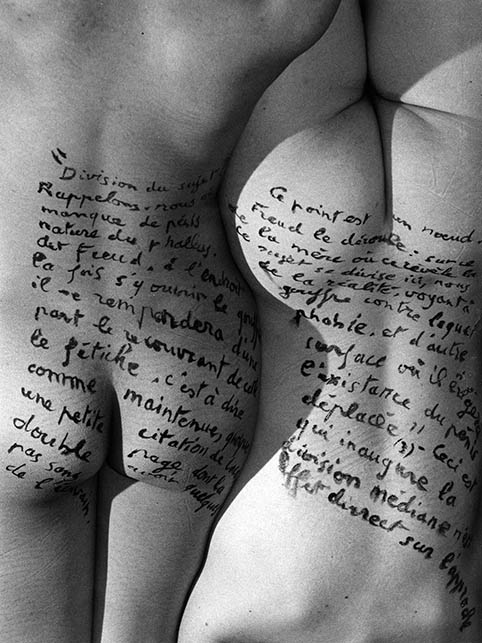 "Division du sujet
Rappelons-nous
manque de pénis
nature du phallus.
dit Freud, à l'endroit
la fois s'y ouvrir le gouff
il se rempardera d'une
part le recouvrant de
le fétiche, c'est à dire
comme maintenue,
une petite citation de
double page dont la
pas sans
de l'écrivain.
Ce point est un nœud,
Freud le déroule: sur
la mère où ce révèle
sujet se divise ici, nous
de la réalité, voyant à
gouffre contre lequel
phobie, et d'autre
surface où il érige
l'existance du pénis
déplacée" (3) Ceci est
qui inaugure la
division mediane
effet dirrect sur l'approche